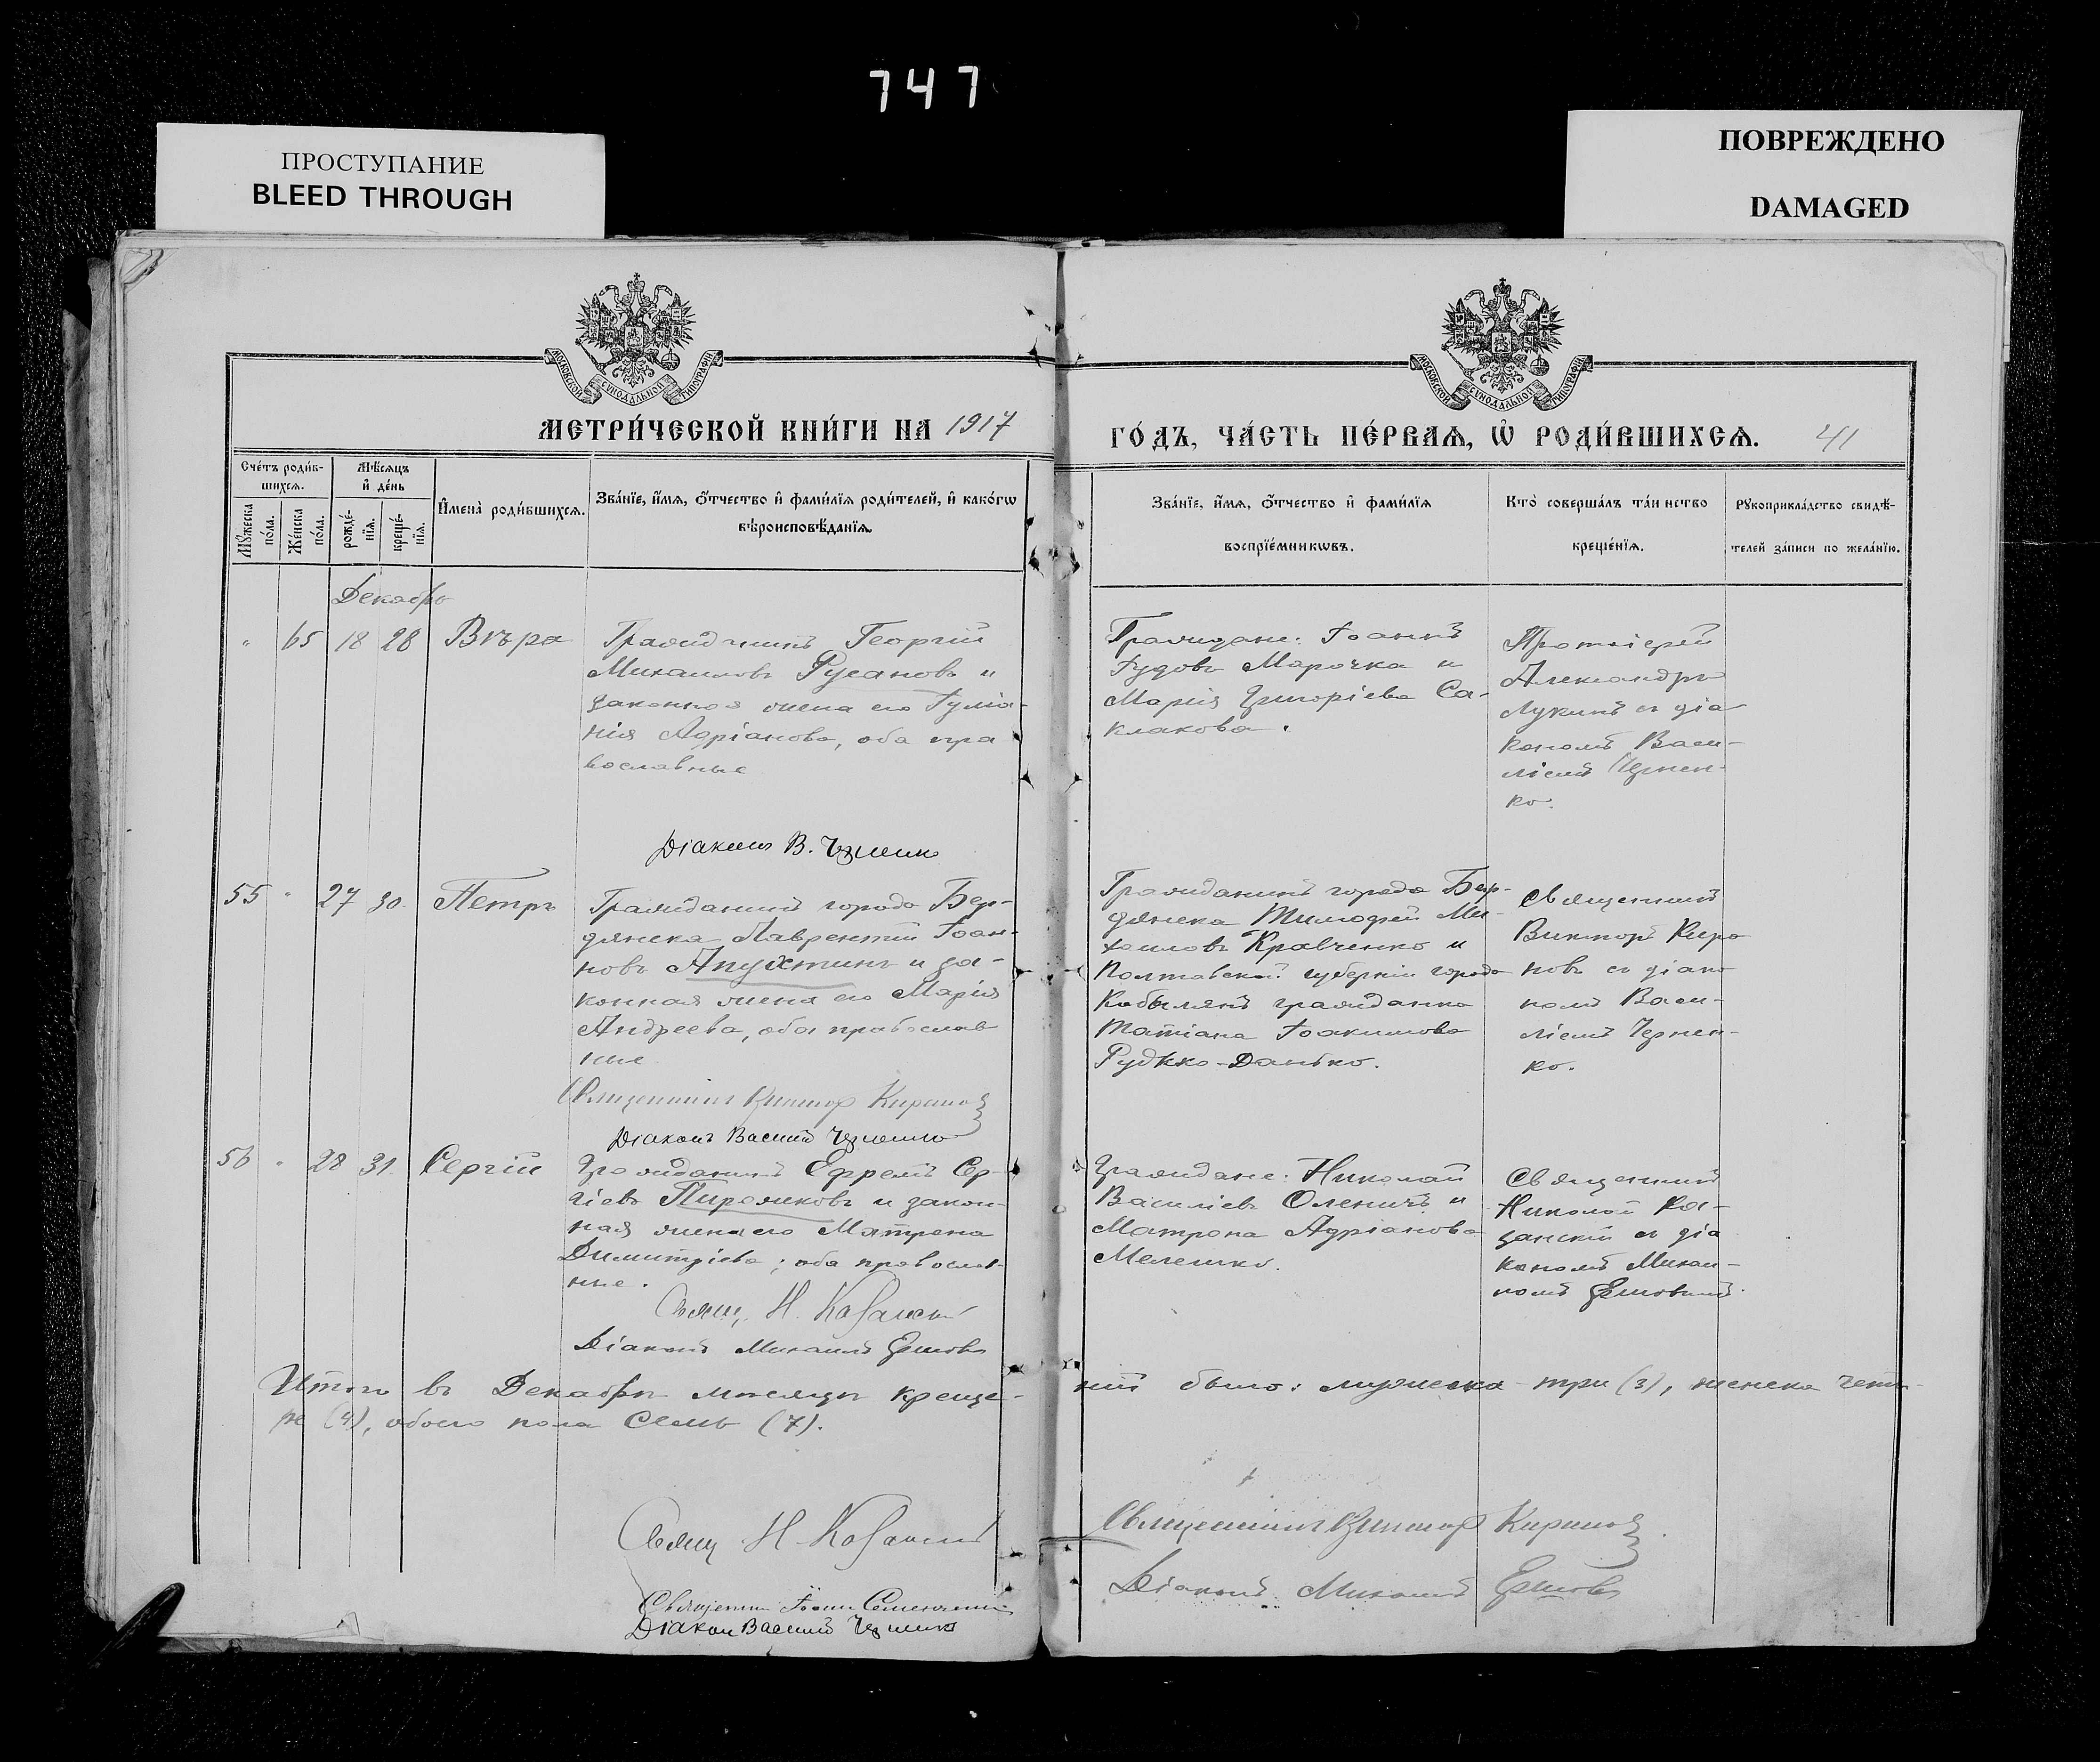 747
ПРОСТУПАНИЕ
BLEED THROUGH
ПОВРЕЖДЕНО
DAMAGED
МОСКОВСКОЙ СѴНОДАЛЬНОЙ ТИПОГРАФІИ
МОСКОВСКОЙ СѴНОДАЛЬНОЙ ТИПОГРАФІИ
МЕТРИ́ЧЕСКОЙ КНИ́ГИ НА 1917
ГО́ДЪ, ЧА́СТЬ ПЕ́РВАѦ, Ѡ҆ РОДИ́ВШИХСѦ. 41
Сче́тъ роди́в-
шихсѧ.
Мꙋ́жеска по́ла.
Же́нска по́ла.
Мѣ́сѧцъ
и҆ де́нь
рожде́-нїѧ.
креще́-нїѧ.
И҆мена̀ роди́вшихсѧ.
Зва́нїе, и҆́мѧ, ѻ҆́тчество и҆ фами́лїѧ роди́телей, и҆ како́гѡ
вѣроисповѣ́данїѧ.
Зва́нїе, и҆́мѧ, ѻ҆́тчество и҆ фами́лїѧ
воспрїе́мникѡвъ.
Кто̀ соверша́лъ та́инство
креще́нїѧ.
Рꙋкоприкла́дство свидѣ́-
телей за́писи по жела́нїю.
Декабрь
" 65 18 28 Вѣра
Гражданинъ Георгій
Михаиловъ Русановъ и
законная жена его Іуліа-
нія Адріанова, оба пра
вославные
Діаконъ В. Черненко
Граждане: Іоаннъ
Іудовъ Марочка и
Марія Григоріева Са-
клакова.
Протоіерей
Александръ
Лукинъ съ діа
кономъ Васи-
ліемъ Чернен-
ко.
55 " 27 30. Петръ
Гражданинъ города Бер-
дянска Лаврентій Іоан-
новъ Апухтинъ и за-
конная жена его Марія
Андреева, оба православ
ные
Священникъ Викторъ Кирановъ
Діаконъ Василій Черненко
Гражданинъ города Бер-
дянска Тимофей Ми-
хаиловъ Кравченко и
Полтавской губерніи города
Кобылякъ гражданка
Татіана Іоакимова
Рудько-Данько.
Священникъ
Викторъ Кира
новъ съ діако
номъ Васи-
ліемъ Чернен-
ко.
56 " 28 31. Сергій
Гражданинъ Ефремъ Сер-
гіевъ Пирожковъ и закон-
ная жена его Матрона
Димитріева; оба православ-
ные.
Свящ. Н. Казанскій
Діаконъ Михаилъ Ершовъ
Граждане: Николай
Василіевъ Оленичъ и
Матрона Адріанова
Мелешко.
Священникъ
Николай Ка-
занскій съ діа
кономъ Михаи-
ломъ Ершовымъ.
Итого въ Декабрѣ мѣсяцѣ креще-
ній было: мужеска три (3), женска четы-
ре (4), обоего пола семь (7).
Свящ. Н. Казанскій
Священникъ Викторъ Кирановъ
Священникъ Іоаннъ
Діаконъ Михаилъ Ершовъ
Діаконъ Василій Черненко